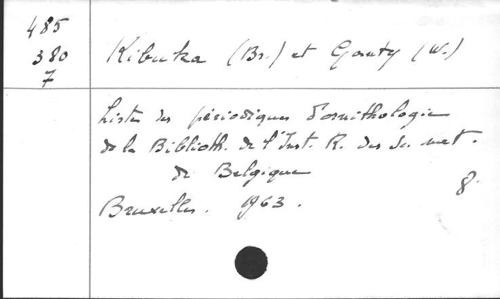 485
380
7
Kibuka (Br.) et Gouty (W.)
Liste des périodiques d'ornithologie
de la Biblioth. de l'Inst. R. des Sc. nat.
de Belgique
8.
Bruxelles. 1963.